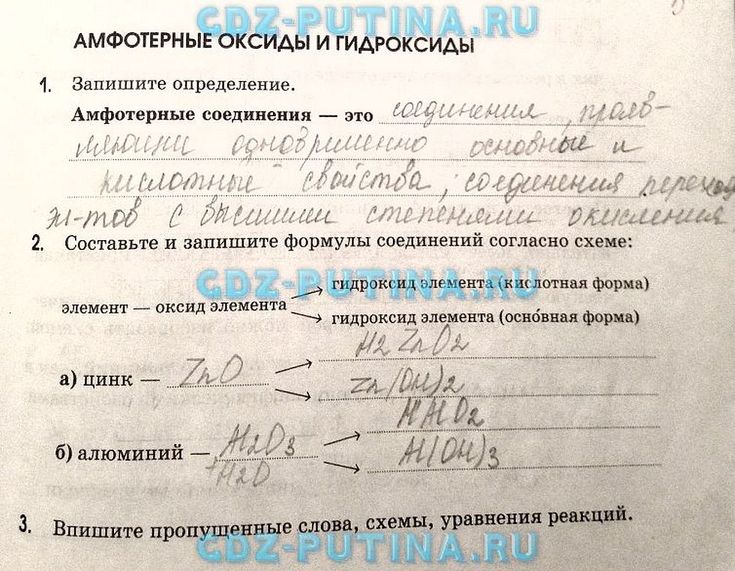 GDZ-PUTINA.RU
АМФОТЕРНЫЕ ОКСИДЫ И ГИДРОКСИДЫ
1. Запишите определение.
Амфотерные соединения — это соединения, прояв-
ляющии одновременно основные и
кислотные свойства, соединения переход
эл-тов с высшими степенями окисления
2. Составьте и запишите формулы соединений согласно схеме:
GDZ-PUTINA.RU
гидроксид элемента (кислотная форма)
элемент — оксид элемента
гидроксид элемента (осно́вная форма)
H2ZnO2
а) цинк — ZnO
Zn(OH)2
HAlO2
б) алюминий — Al2O3
+H2O
Al(OH)3
3. Впишите пропущенные слова, схемы, уравнения реакций.
GDZ-PUTINA.RU